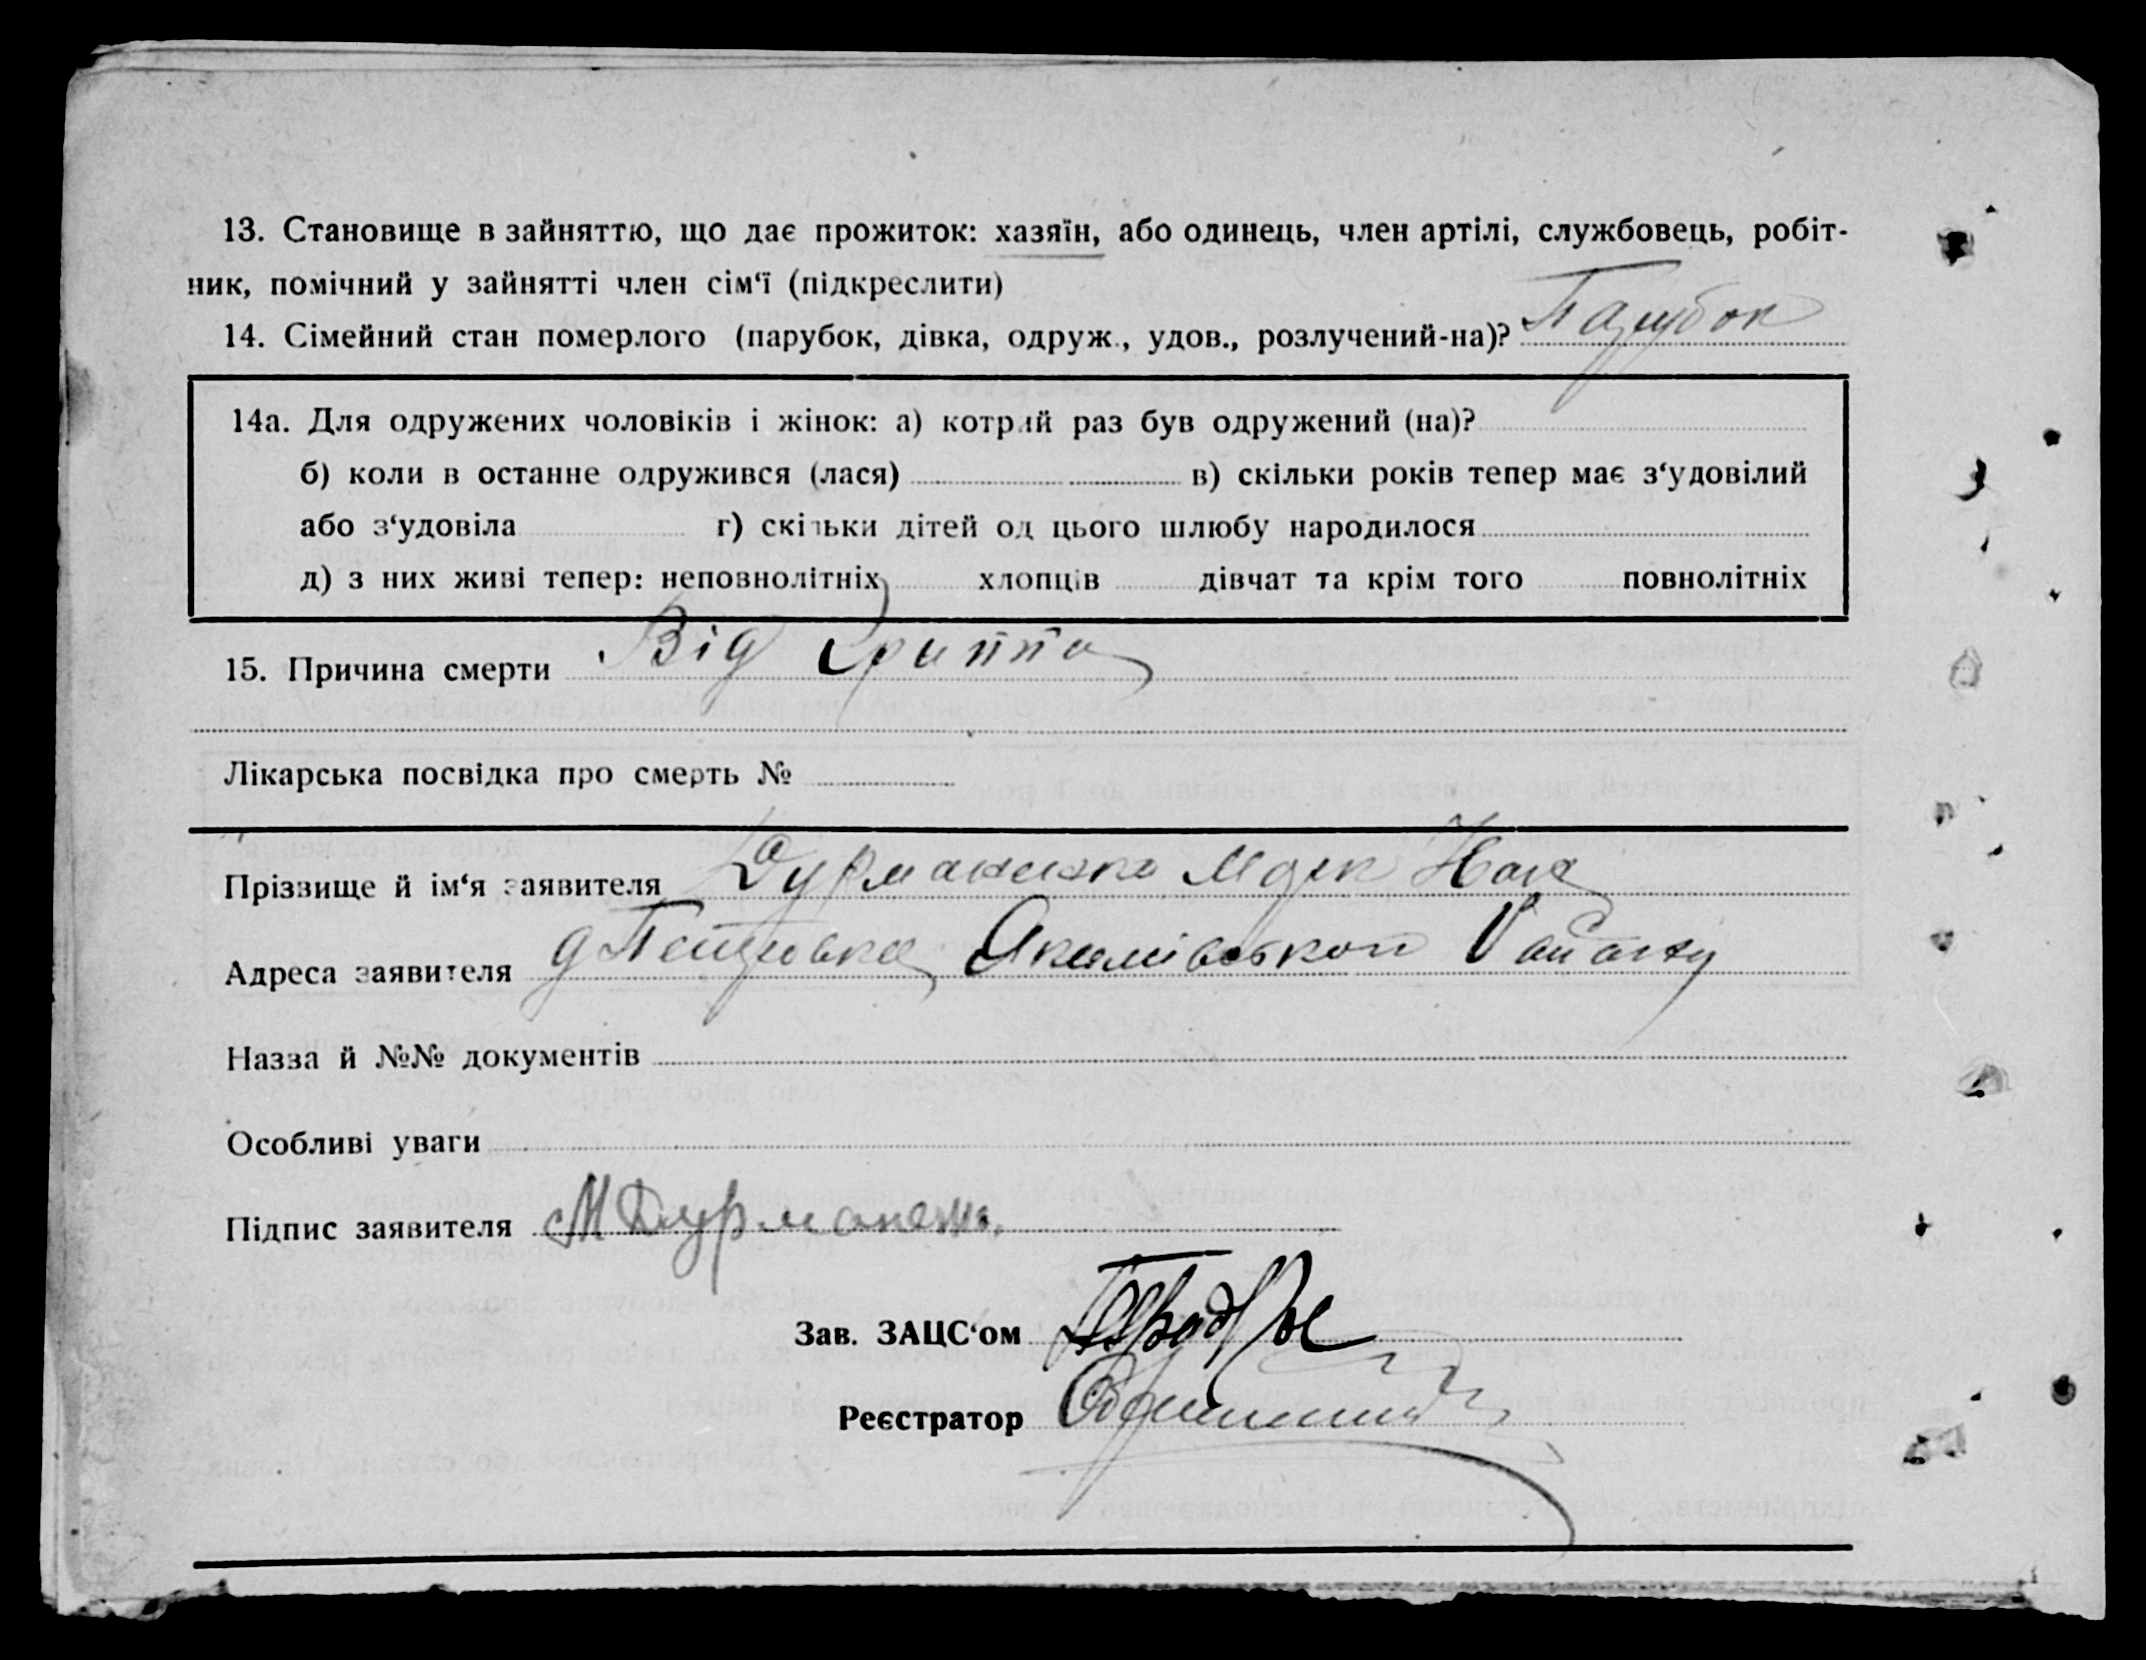 13. Становище в зайняттю, що дає прожиток: хазяїн, або одинець, член артілі, службовець, робіт-
ник, помічний у зайнятті член сім‘ї (підкреслити)
14. Сімейний стан померлого (парубок, дівка, одруж., удов., розлучений-на)? Парубок
14а. Для одружених чоловіків і жінок: а) котрий раз був одружений (на)?
б) коли в останне одружився (лася) в) скільки років тепер має з‘удовілий
або з‘удовіла г) скільки дітей од цього шлюбу народилося
д) з них живі тепер: неповнолітніх хлопців дівчат та крім того повнолітніх
15. Причина смерти Від Гриппа
Лікарська посвідка про смерть №
Прізвище й ім‘я заявителя
Адреса заявителя Якимівського Району
Назва й №№ документів
Особливі уваги
Підпис заявителя
Зав. ЗАЦС‘ом
Реєстратор